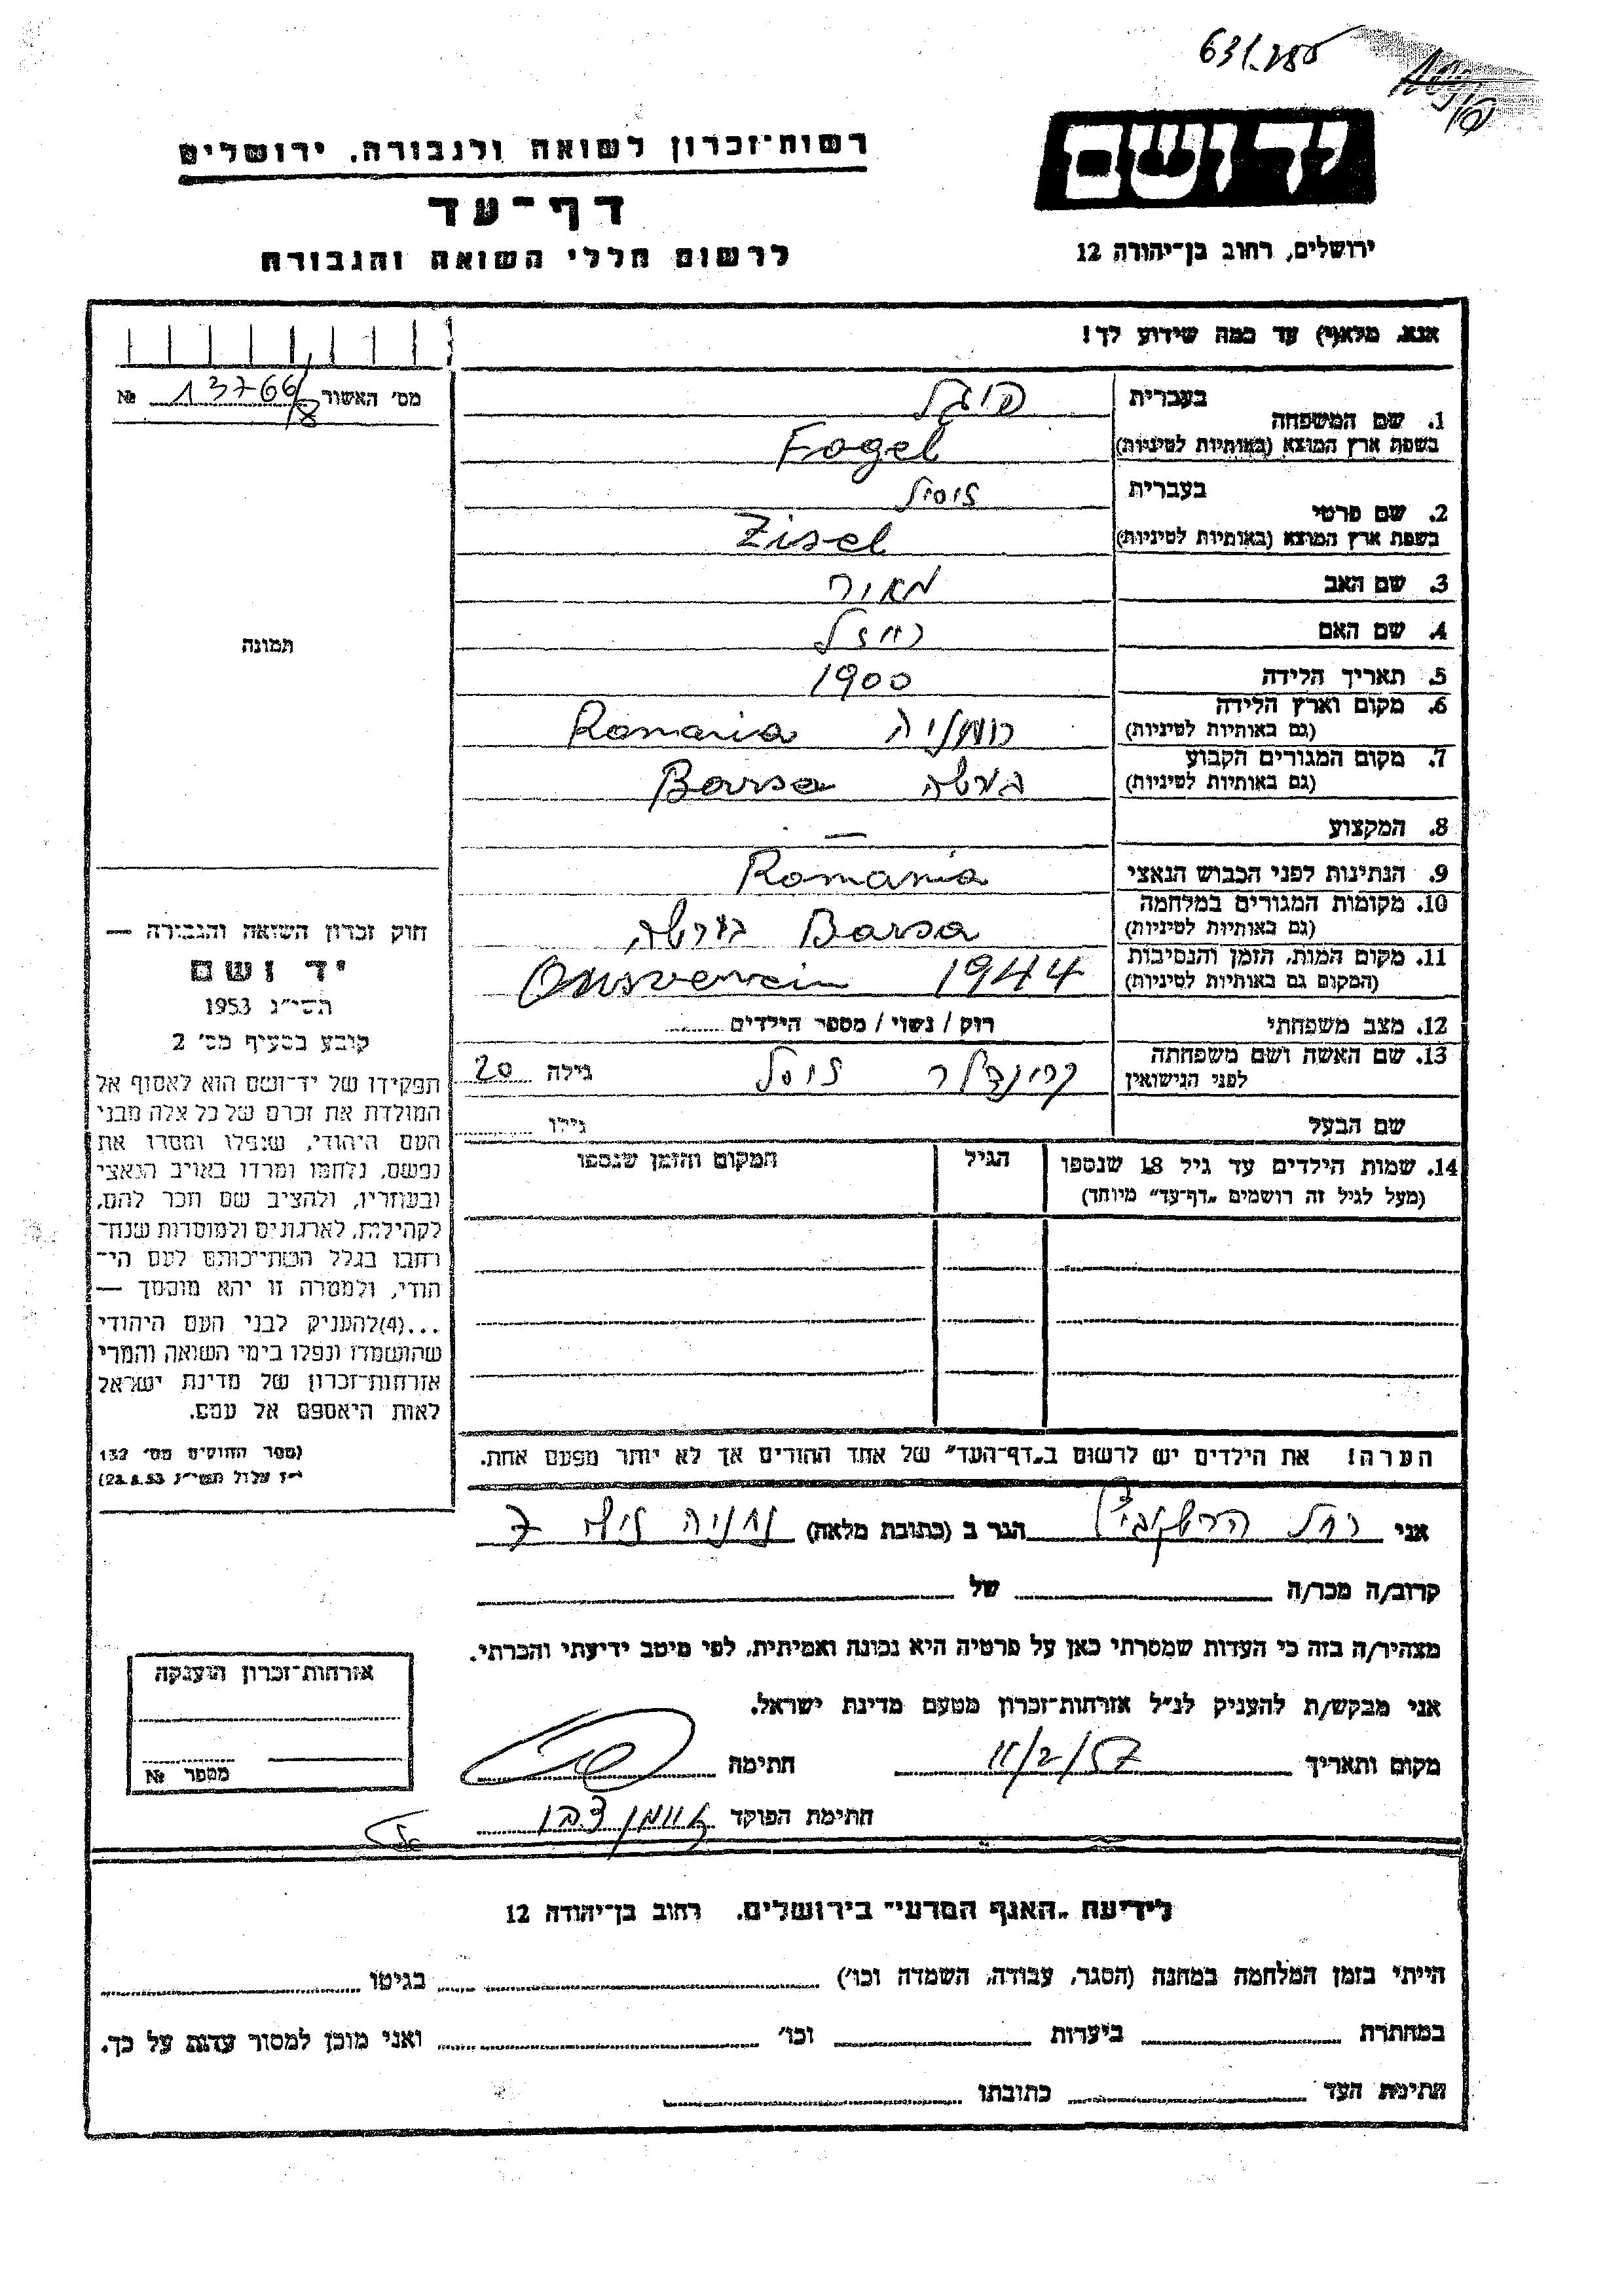 631.285
יד ושם
ירושלים, רחוב בן־יהודה 12
רשות־זכרון לשואה ולגבורה. ירושלים
דף־עד
לרשום חללי השואה והגבורה
אנא, מלא(י) עד כמה שידוע לך!
מס' האשור 13766/8 №
תמונה
1. שם המשפחה
בעברית פוגל
בשפת ארץ המוצא (באותיות לטיניות) Fogel
2. שם פרטי
בעברית זיסל
בשפת ארץ המוצא (באותיות לטיניות) Zisel
3. שם האב מאיר
4. שם האם רייזל
5. תאריך הלידה 1900
6. מקום וארץ הלידה רומניה Romania
(גם באותיות לטיניות)
7. מקום המגורים הקבוע Barsa
(גם באותיות לטיניות)
8. המקצוע —
9. הנתינות לפני הכבוש הנאצי Romania
10. מקומות המגורים במלחמה Barsa
(גם באותיות לטיניות)
11. מקום המות, הזמן והנסיבות 1944
(המקום גם באותיות לטיניות)
12. מצב משפחתי רוק / נשוי / מספר הילדים
13. שם האשה ושם משפחתה זיסל גילה 20
לפני הנישואין
שם הבעל גילו
14. שמות הילדים עד גיל 18 שנספו הגיל המקום והזמן שנספו
(מעל לגיל זה רושמים „דף־עד" מיוחד)
הערה! את הילדים יש לרשום ב„דף־העד" של אחד ההורים אך לא יותר מפעם אחת.
חוק זכרון השואה והגבורה —
יד ושם
תשי״ג 1953
קובע בסעיף מס' 2
תפקידו של יד־ושם הוא לאסוף אל
המולדת את זכרם של כל אלה מבני
העם היהודי, שנפלו ומסרו את
נפשם, נלחמו ומרדו באויב הנאצי
ובעוזריו, ולהציב שם וזכר להם,
לקהילות, לארגונים ולמוסדות שנח־
רבו בגלל השתייכותם לעם הי־
הודי, ולמטרה זו יהא מוסמך —
...(4)להעניק לבני העם היהודי
שהושמדו ונפלו בימי השואה והמרי
אזרחות־זכרון של מדינת ישראל
לאות היאספם אל עמם.
(ספר החוקים מס' 132
י״ז אלול תשי״ג 28.8.53)
אני רחל הרשקוביץ הגר ב (כתובת מלאה) 7
קרוב/ה מכר/ה של
מצהיר/ה בזה כי העדות שמסרתי כאן על פרטיה היא נכונה ואמיתית, לפי מיטב ידיעתי והכרתי.
אני מבקש/ת להעניק לנ״ל אזרחות־זכרון מטעם מדינת ישראל.
מקום ותאריך 11/2/57 חתימה
חתימת הפוקד
אזרחות־זכרון הוענקה
מספר №
לידיעת „האגף המדעי" בירושלים. רחוב בן־יהודה 12
הייתי בזמן המלחמה במחנה (הסגר, עבודה, השמדה וכו') בגיטו
במחתרת ביערות וכו' ואני מוכן למסור עדות על כך.
חתימת העד כתובתו